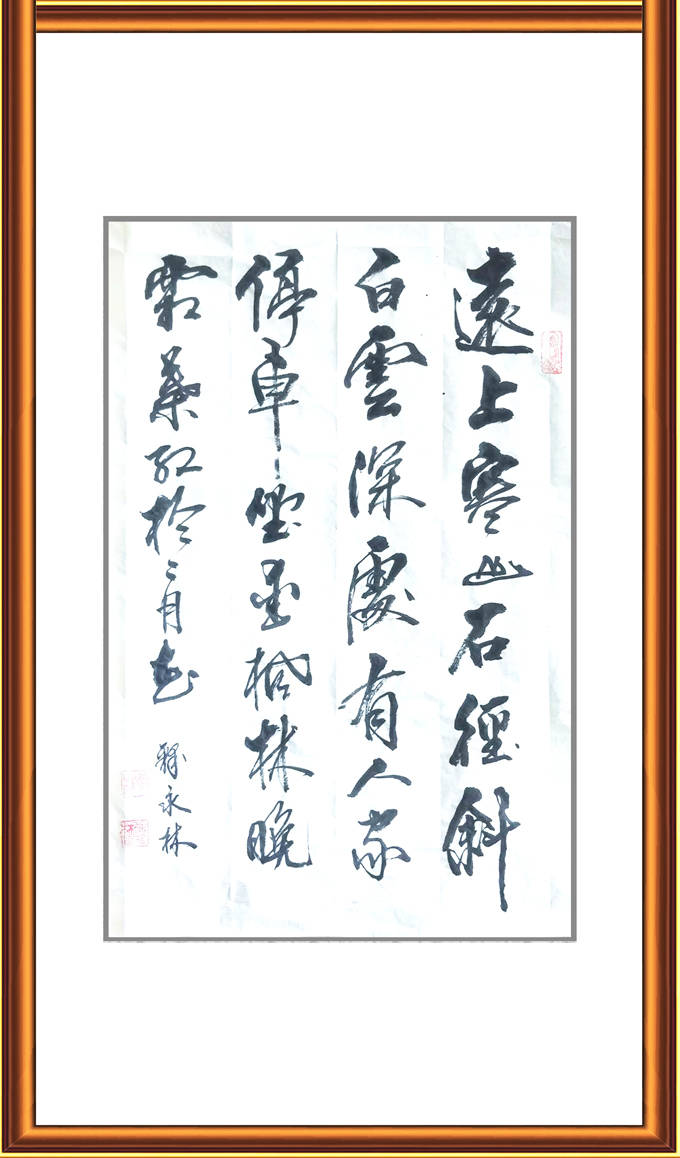 遠上寒山石徑斜
白雲深處有人家
停車坐愛楓林晚
霜葉紅於二月花
永林